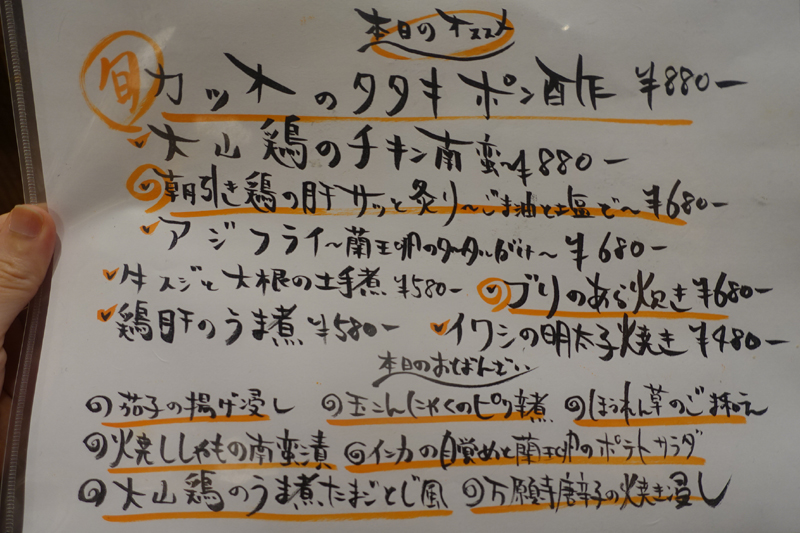 本日のオススメ
旬 カツオのタタキ ポン酢 ¥880-
大山鶏のチキン南蛮 ¥880-
朝引き鶏の肝 サッと炙り〜ごま油と塩で〜 ¥680-
アジフライ〜蘭王卵のタルタルがけ〜 ¥680-
牛スジと大根の土手煮 ¥580- ブリのあら炊き ¥680-
鶏肝のうま煮 ¥580- イワシの明太子焼き ¥480-
本日のおばんざい
茄子の揚げ浸し 玉こんにゃくのピリ辛煮 ほうれん草のごま和え
焼ししゃもの南蛮漬 インカの目覚めと蘭王卵のポテトサラダ
大山鶏のうま煮たまごとじ風 万願寺唐辛子の焼き浸し